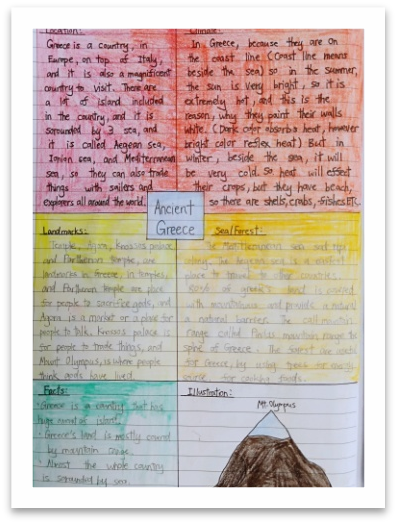 Location:
Greece is a country, in
Europe, on top of Italy,
and it is also a magnificent
country to visit. There are
a lot of island included
in the country, and it is
sorrounded by 3 sea, and
it is called Aegean sea,
Ionian sea, and Mediterranean
sea, so they can also trade
things with sailors and
explorers all around the world.
Climate:
In Greece, because they are on
the coast line (Coast line means
beside the sea) so in the summer,
the sun is very bright, so it is
extremely hot, and this is the
reason, why they paint their walls
white. (Dark color absorbs heat, however
bright color reflex heat) But in
winter, beside the sea, it will
be very cold. so heat will effect
their crops, but they have beach,
so there are shells, crabs, fishes ETC.
Ancient
Greece
Landmarks:
Temple, Agora, Knossos palace
and Parthenon temple, are
landmarks in Greece, in temples,
and Parthenon temple are place
for people to sacrifice gods, and
Agora is a market or a place for
people to talk. Knossos palace is
for people to trade things, and
Mount Olympus, is where people
think gods have lived.
Sea/Forest:
The Mediterranean sea
along. The Aegean sea is a
way to travel to other countries.
of greek's land is covered
with mountains and provide a natural
a natural barrier. The
range called Pindus mountain range the
spine of Greece. The forest are useful
for Greece, by using trees for energy
source for cooking foods.
Facts:
Greece is a country that has
huge amount of island.
Greece's land is mostly covered
by mountain range.
Almost the whole country
is sorrounded by sea.
Illustration:
Mt. Olympus